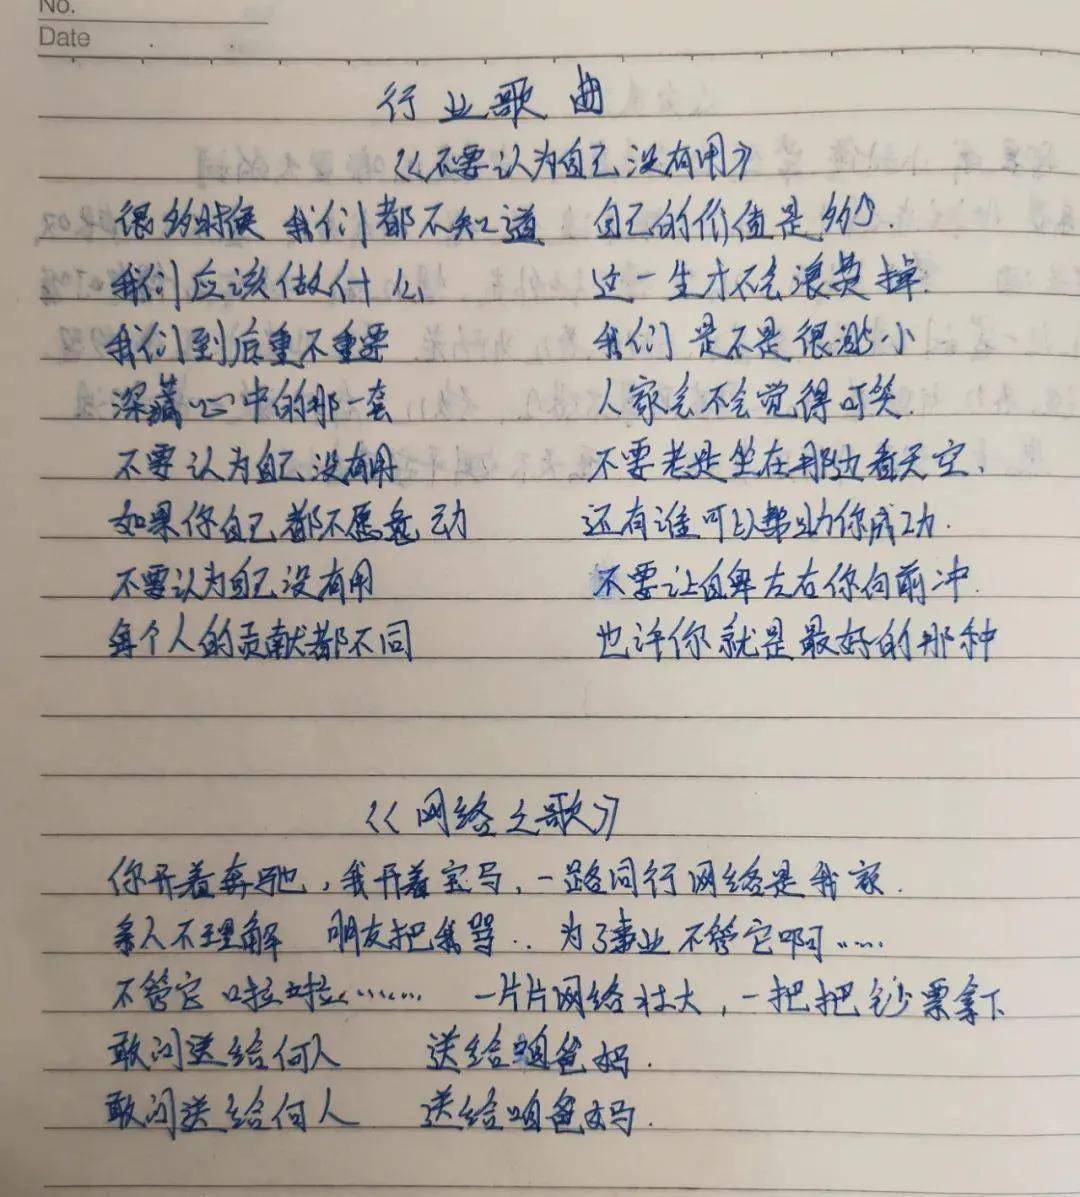 No.
Date
行业歌曲
《不要认为自己没有用》
很多时候 我们都不知道 自己的价值是多少.
我们应该做什么 这一生才不会浪费掉.
我们到底重不重要 我们是不是很渺小
深藏心中的那一套 人家会不会觉得可笑.
不要认为自己没有用 不要老是坐在那边看天空.
如果你自己都不愿意动 还有谁可以帮助你成功.
不要认为自己没有用 不要让自卑左右你向前冲.
每个人的贡献都不同 也许你就是最好的那种
《网络之歌》
你开着奔驰,我开着宝马,一路同行网络是我家.
亲人不理解 朋友把我骂.. 为了事业不管它啊……
不管它啦啦…… 一片片网络壮大,一把把钞票拿下
敢问送给何人 送给咱爸妈.
敢问送给何人 送给咱爸妈.